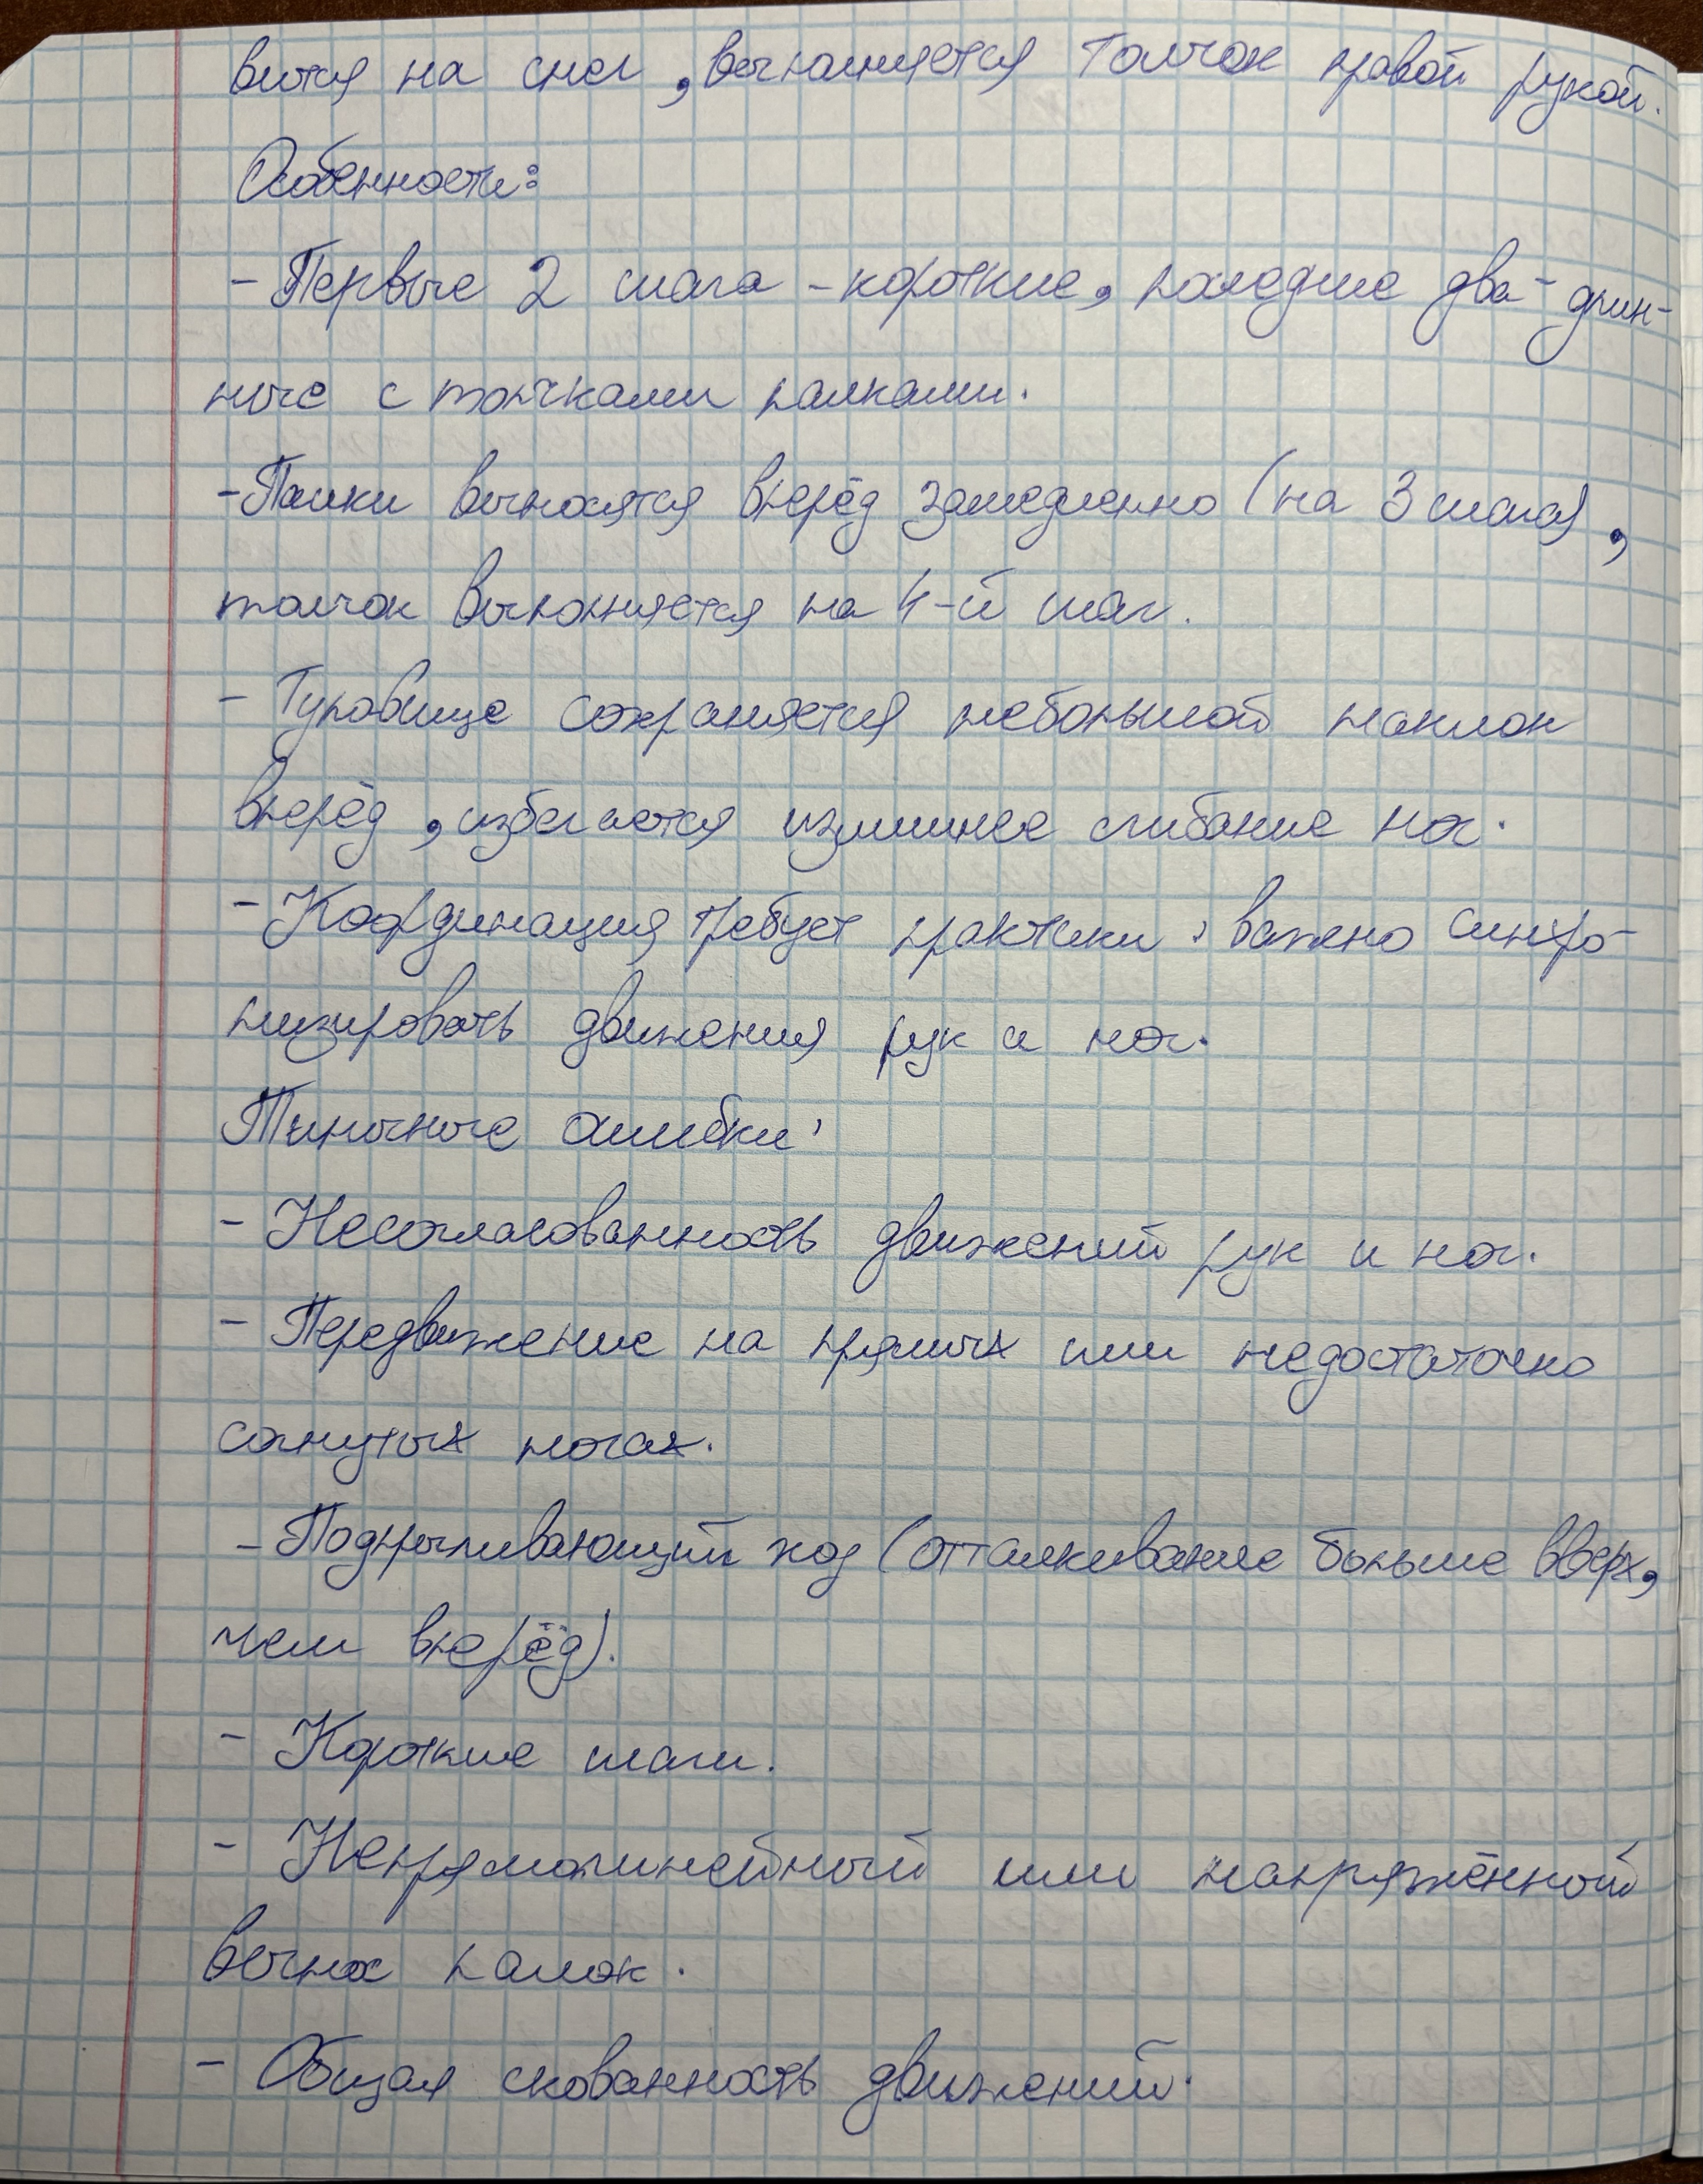 вится на снег, выполняется толчок правой рукой.
Особенности:
- Первые 2 шага - короткие, последние два - длин-
ные с толчками палками.
- Палки выносятся вперёд замедленно (на 3 шага),
толчок выполняется на 4-й шаг.
- Туловище сохраняется небольшой наклон
вперёд, избегается излишнее сгибание ног.
- Координация требует практики: важно синхро-
низировать движения рук и ног.
Типичные ошибки:
- Несогласованность движений рук и ног.
- Передвижение на прямых или недостаточно
согнутых ногах.
- Подпрыгивающий ход (отталкивание больше вверх,
чем вперёд).
- Короткие шаги.
- Непрямолинейный или напряжённый
вынос палок.
- Общая скованность движений.